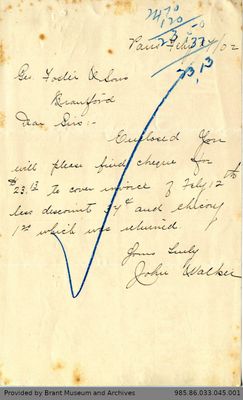 24 70
1 20
23 50
37
23.13
Paris Feb 24/02
Geo. Foster & Sons
Brantford
Dear Sirs :-
Enclosed you
will please find cheque for
$23.13 to cover invoice of Feby 12th
less discount 37¢ and
1 20 which was returned
Yours Truly
John Walker
Provided by Brant Museum and Archives
985.86.033.045.001